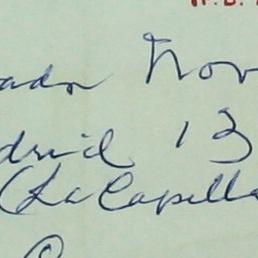 ador Nov
drid 13
(La Capilla